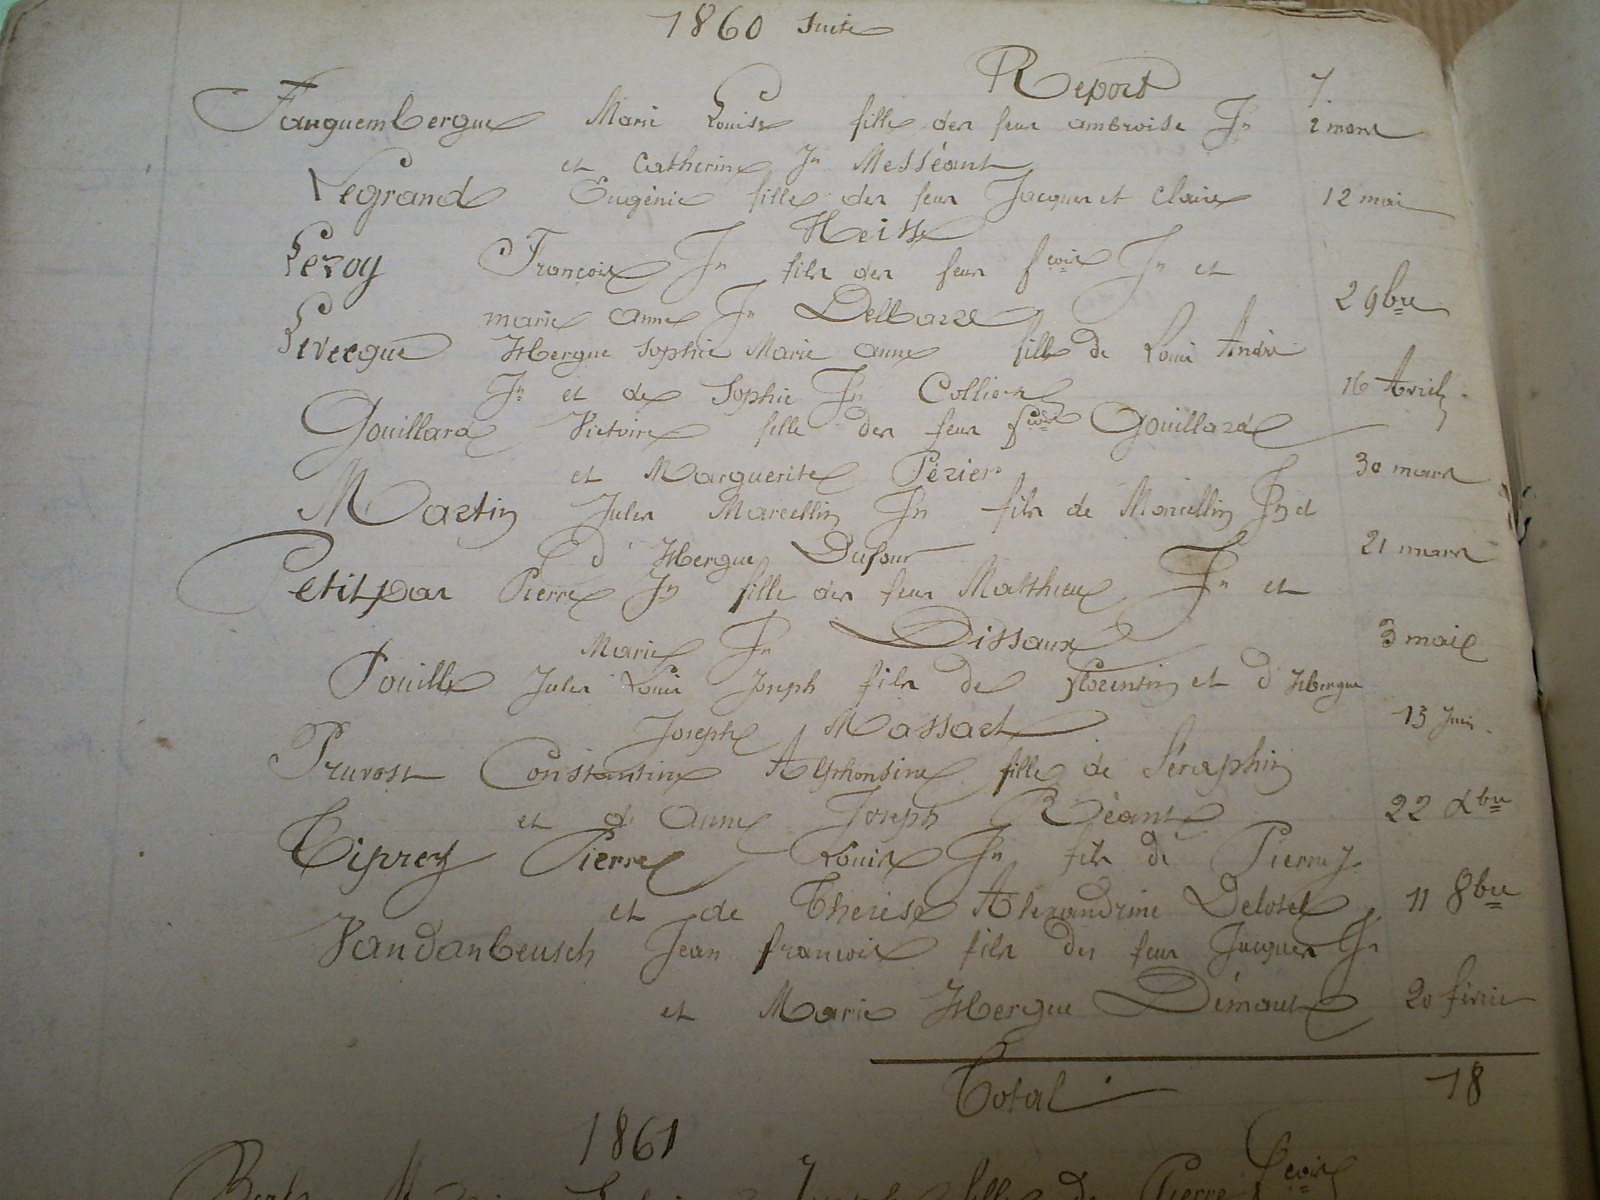 1860 suite
Report 7
Fauquembergue Marie Louise fille des feus ambroise Jh 2 mars
et Catherine Jh Messéant
Legrand Eugénie fille des feus Jacques et Claire 12 mai
Heisse
Leroy François Jh fils des feus fçois Jh et
marie anne Jh Delbarre 2 9bre
Levecque Isbergue Sophie Marie anne fille de Louis André
Jh et de Sophie Jh Colliez 16 Avril
Gouillard Victoire fille des feus fçois Gouillard
et Marguerite Pézier 30 mars
Martin Jules Marcellin Jh fils de Marcellin Jh et
d'Isbergue Dufour 21 mars
Petitpas Pierre Jh fille des feus Matthieu Jh et
Marie Jh Dissaux 3 mai
Pouille Jules Louis Joseph fils de florentin et d'Isbergue
Joseph Massart 13 Juin
Pruvost Constantine Alphonsine fille de Séraphin
et d'Anne Joseph Béant 22 Xbre
Tiprez Pierre Louis Jh fils de Pierre J
et de Thérèse Alexandrine Delotel 11 8bre
Vandanbeusch Jean françois fils des feus Jacques Jh
et Marie Isbergue Demaut 20 févrie
Total 18
1861
fille de Pierre fçois